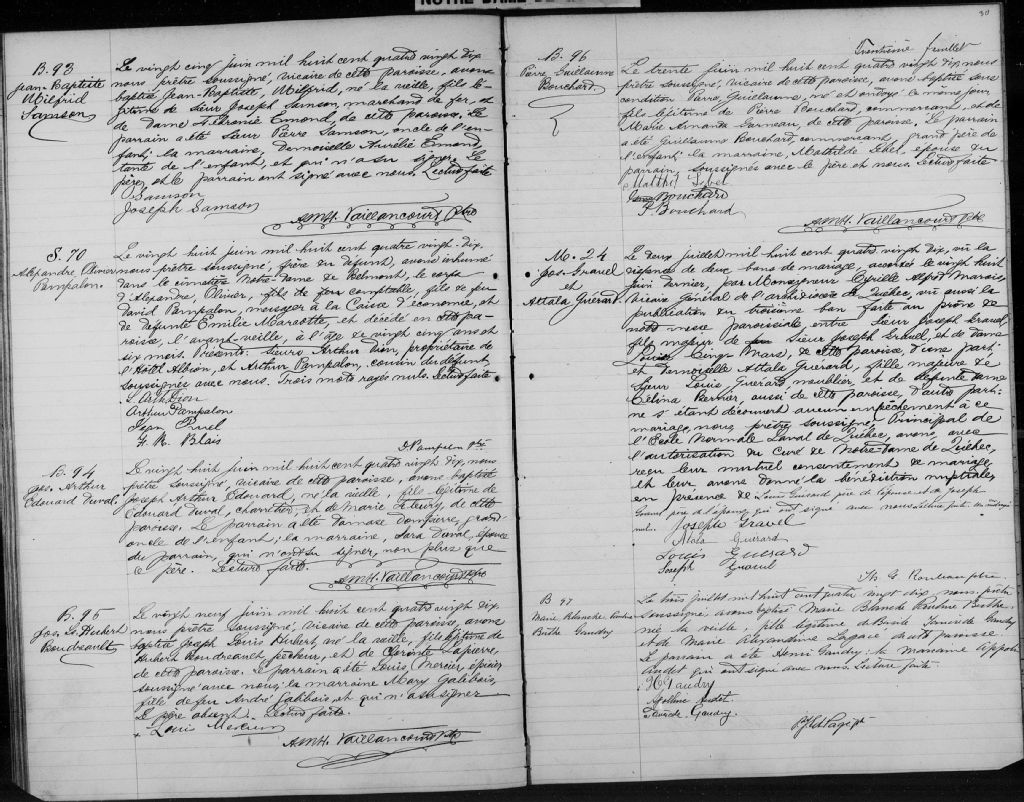 NOTRE DAME DE
B. 93
Jean Baptiste
Wilfrid
Samson
Le vingt cinq juin mil huit cent quatre vingt dix
nous prêtre soussigné, vicaire de cette paroisse, avons
baptisé Jean-Baptiste, Wilfrid, né la veille, fils lé-
gitime de Sieur Joseph Samson, marchand de fer, et
de dame Emond, de cette paroisse. Le
parrain a été Sieur Pierre Samson, oncle de l'en-
fant; la marraine, Demoiselle Aurélie Emond,
tante de l'enfant, et qui n'a su signer. Le
père, et le parrain ont signé avec nous. Lecture faite
Samson
Joseph Samson
A.M.H. Vaillancourt Ptre
S. 70
Alexandre Olivier
Pampalon.
Le vingt huit juin mil huit cent quatre vingt-dix,
nous prêtre soussigné, frère du défunt, avons inhumé
dans le cimetière Notre-Dame de Belmont, le corps
d'Alexandre, Olivier, comptable, fils de feu
David Pampalon, messager à la Caisse d'économie, et
de défunte Emilie Marcotte, et décédé en cette pa-
roisse, l'avant-veille, à l'âge de vingt cinq ans et
six mois. Présents: Sieurs Arthur Dion, propriétaire de
l'Hôtel Albion, et Arthur Pampalon, cousin du défunt,
soussignés avec nous. Trois mots rayés nuls. Lecture faite
Dion
Arthur Pampalon
Jean
Blais
P. Pampalon Ptre
B. 94
Jos. Arthur
Edouard Duval,
Le vingt huit juin mil huit cent quatre vingt dix, nous
prêtre soussigné, vicaire de cette paroisse, avons baptisé
Joseph Arthur Edouard, né la veille, fils légitime de
Edouard Duval, charretier, et de Marie Fleury, de cette
paroisse. Le parrain a été Damase Dompierre, grand-
oncle de l'enfant; la marraine, Sara Duval, épouse
du parrain, qui n'ont su signer, non plus que
le père. Lecture faite.
A.M.H. Vaillancourt Ptre
B. 95
Jos. Ls. Hubert
Boudreault
Le vingt neuf juin mil huit cent quatre vingt dix
nous prêtre soussigné, vicaire de cette paroisse, avons
baptisé Joseph Louis Hubert, né la veille, fils légitime de
Hubert Boudreault pêcheur, et de Lapierre,
de cette paroisse. Le parrain a été Louis Mercier, épicier
soussigné avec nous; la marraine Mary Galibois,
fille de feu André Galibois, et qui n'a su signer
Le père absent. Lecture faite.
Louis Mercier
A.M.H. Vaillancourt Ptre
30
Trentième feuillet
B. 96
Pierre Guillaume
Bouchard
Le trente juin mil huit cent quatre vingt dix nous
prêtre soussigné, vicaire de cette paroisse, avons baptisé sous
condition Pierre, Guillaume, né et ondoyé le même jour
fils légitime de Pierre Bouchard, commerçant, et de
Marie Amanda Garneau, de cette paroisse. Le parrain
a été Guillaume Bouchard commerçant, grand père de
l'enfant; la marraine, Mathilde Lebel, épouse du
parrain, soussignés avec le père et nous. Lecture faite
Lebel
Bouchard
P. Bouchard
A.M.H. Vaillancourt Ptre
M. 24
Jos. Gravel
et
Attala Guérard
Le deux juillet mil huit cent quatre vingt dix, vu la
dispense de deux bans de mariage, accordée le vingt huit
juin dernier, par Monseigneur Cyrille Marois,
Vicaire Général de l'archidiocèse de Québec, vu aussi la
publication du troisième ban faite au prône de
notre messe paroissiale entre Sieur Joseph Gravel
fils majeur de Sieur Joseph Gravel, et de dame
Cinq Mars, de cette paroisse, d'une part;
et demoiselle Attala Guérard, fille majeure de
Sieur Louis Guérard meublier, et de défunte dame
Célina Bernier, aussi de cette paroisse, d'autre part;
ne s'étant découvert aucun empêchement à ce
mariage, nous, prêtre, soussigné, Principal de
l'Ecole Normale Laval de Québec, avons, avec
l'autorisation du Curé de Notre-Dame de Québec,
reçu leur mutuel consentement de mariage
et leur avons donné la bénédiction nuptiale,
en présence de Louis Guérard père de l'épouse et de Joseph
Gravel père de l'époux, qui ont signé avec nous. Lecture faite.
Joseph Gravel
Atala Guérard
Louis Guérard
Joseph Gravel
Th. G. Rouleau ptre.
B 97
Marie Blanche Pauline
Berthe Gaudry
Le trois juillet mil huit cent quatre vingt dix nous, prêtre
soussigné, avons baptisé Marie Blanche Pauline Berthe
née la veille, fille légitime de Gaudry
et de Marie Alexandrine Lagacé, de cette paroisse.
Le parrain a été Henri Gaudry; la marraine
qui ont signé avec nous. Lecture faite.
H Gaudry
Gaudry